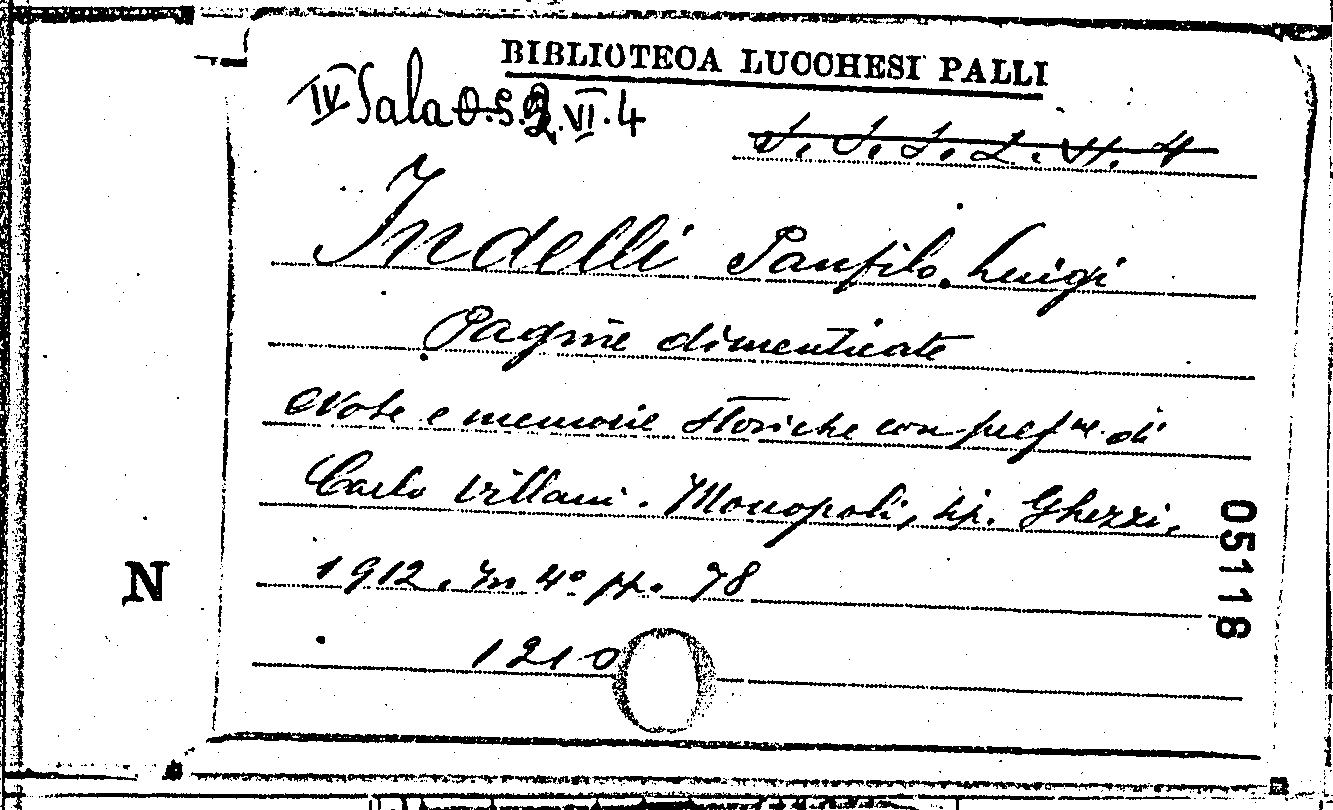 BIBLIOTECA LUCCHESI PALLI
IV Sala O.S.2.VI.4
S. S. S. 2. VI. 4
Indelli Panfilo Luigi
Pagine dimenticate
Note e memorie storiche con pref.ne di
Carlo Villani. Monopoli, tip. Ghezzi.
1912. In 4º pp. 78
1210
N
05118